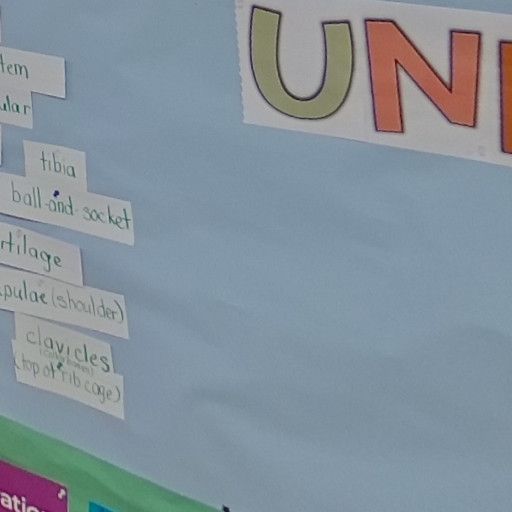 UN
tem
ular
tibia
ball-and-socket
rtilage
pulae (shoulder)
clavicles
(top of rib cage)
atio